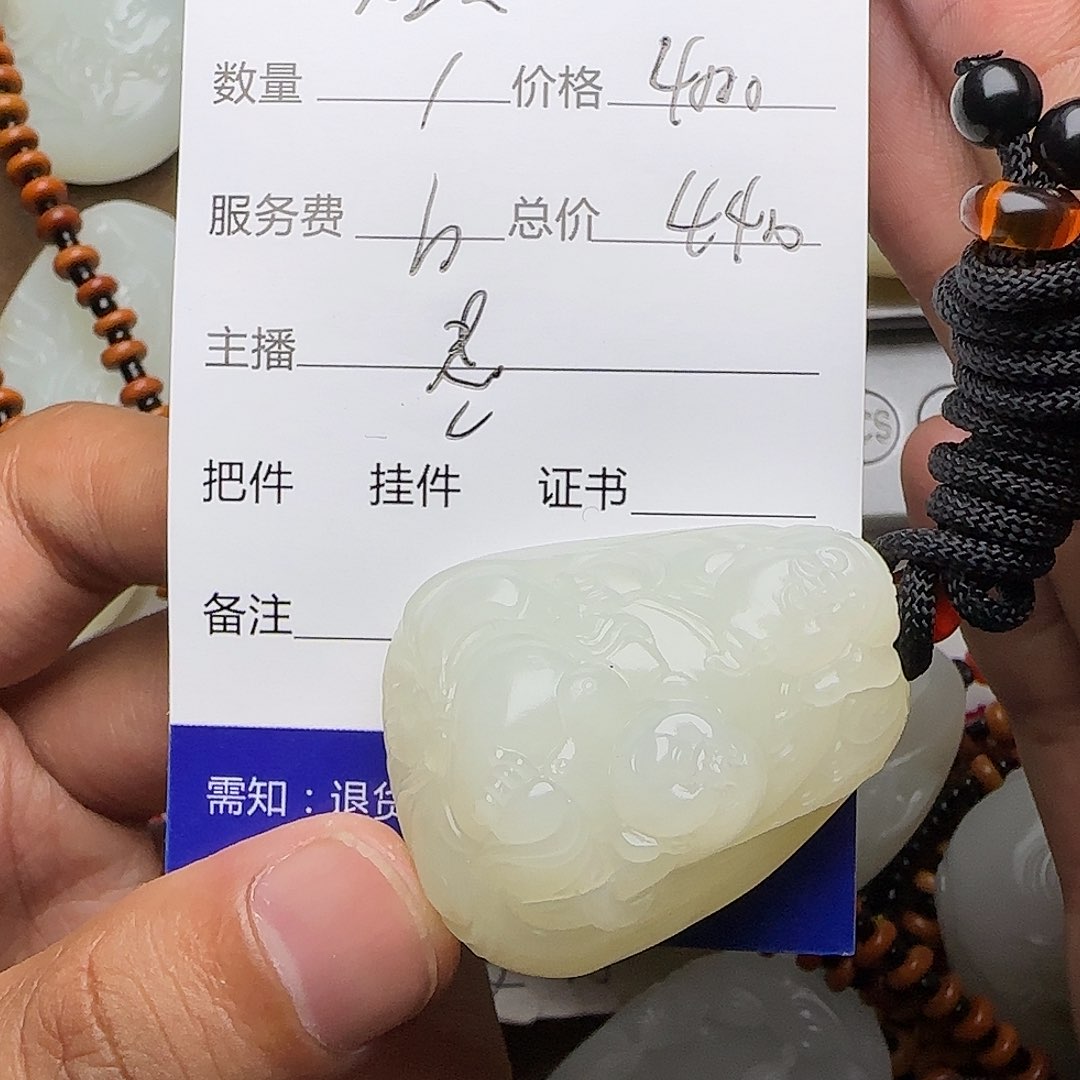 数量 1 价格 4000
服务费 10 总价 4400
主播
把件 挂件 证书
备注
需知：退货
CS